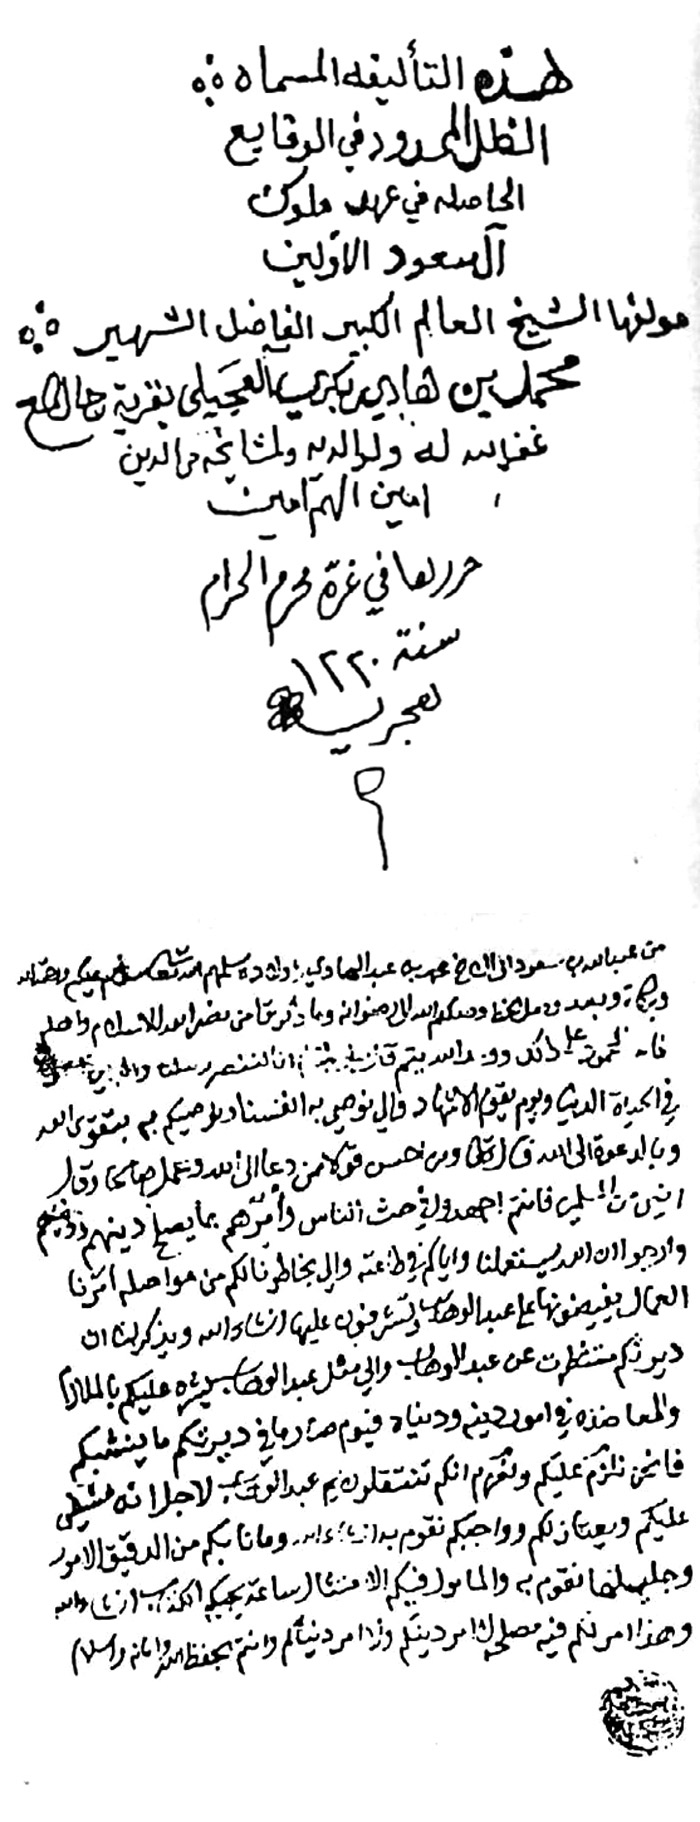 هذه التأليفه المسماه
الظل الممدود في الوقايع
الحاصله في عهد ملوك
آل سعود الاولين
مولفها الشيخ العالم الكبير الفاضل الشهير
محمد بن هادي بكري العجيلي بقرية رجال المع
غفر الله له ولوالديه ولمشائخه في الدين
امين الهم امين
حررها في غرة محرم الحرام
سنة ١٢٢٠
هجريه
من عبدالله بن سعود الى الشيخ محمد بن عبدالهادي واولاده سلمهم الله تعالى سلام عليكم ورحمة الله
وبركاته وبعد الله الى رضوانه وما ذكرتوا من نصر الله للاسلام واهله
ذلك الله يتم انا لننصر رسلنا والذين
في الحياة الدنيا ويوم يقوم الاشهاد والي نوصي به انفسنا ونوصيكم به بتقوى الله
وبالدعوة الى الله قال تعالى ومن احسن قولا ممن دعا الى الله وعمل صالحا وقال
انني من المسلمين فانتم اجهدوا في حث الناس وأمرهم بما يصلح دينهم
وارجوا ان الله يستعملنا واياكم في طاعته والي بخاطرنا لكم من مواصله أمرنا
العمال يفيضونها على عبدالوهاب وتشرفون عليها ان شاء الله ويذكر لنا ان
ديرتكم منتظرت عن عبدالوهاب والي مثل عبدالوهاب يشره عليكم بالملازا
والمعاضده في امور دينه ودنياه فيوم صار ما في ديرتكم ما ينشبكم
فانحن نلزم عليكم ونعزم انكم تنتقلون يم عبدالوهاب لاجل انه
عليكم ويعتاز لكم وواجبكم نقوم به ان شاء الله وما نابكم من الدقيق الامور
وجليلها نقوم به والمامول فيكم الامتثال ساعة يجيكم الكتاب ان شاء الله
وهذا امر لكم فيه مصلحه امر دينكم وامر دنياكم وانتم بحفظ الله وامانه والسلام